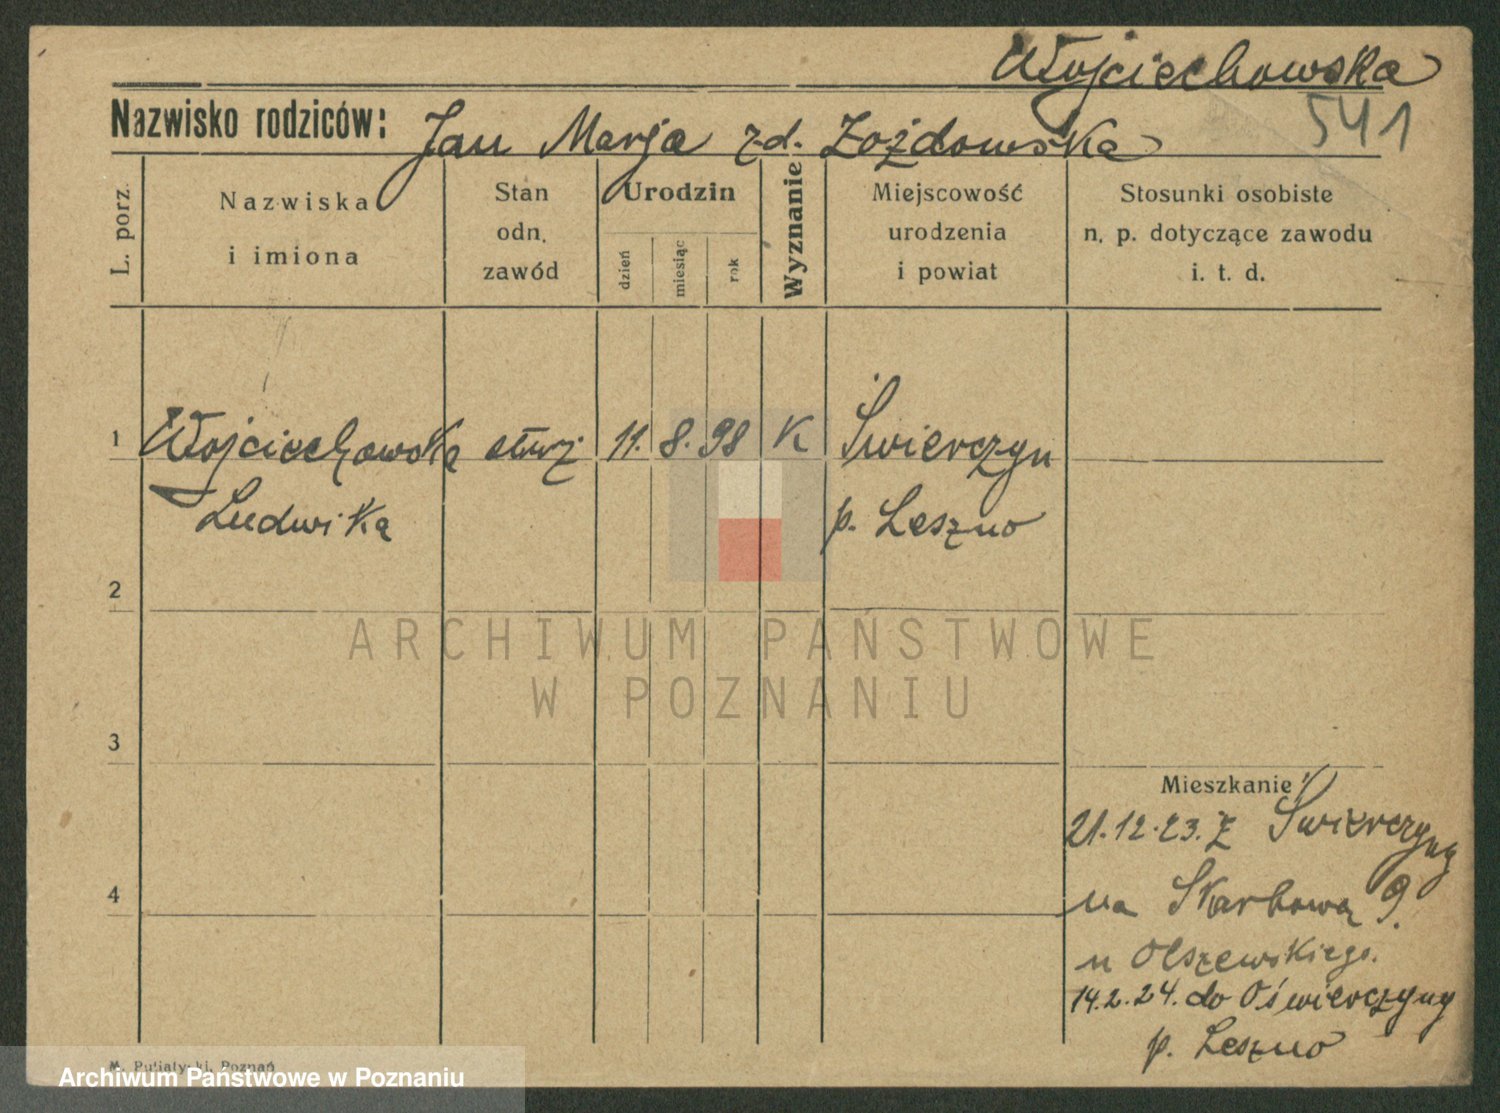 Wojciechowska
541
Nazwisko rodziców: Jan Marja zd.
L. porz.
Nazwiska i imiona
Stan odn. zawód
Urodzin
dzień
miesiąc
rok
Wyznanie
Miejscowość urodzenia i powiat
Stosunki osobiste n. p. dotyczące zawodu i. t. d.
1 Wojciechowska 11. 8. 98 K Świerczyn
Ludwika p. Leszno
2
ARCHIWUM PAŃSTWOWE
W POZNANIU
3
Mieszkanie
21.12.23. z Świerczyny
4
na Skarbową 9.
u Olszewskiego.
14.2.24. do Oświerczyny
p. Leszno
M. Putiatycki, Poznań
Archiwum Państwowe w Poznaniu